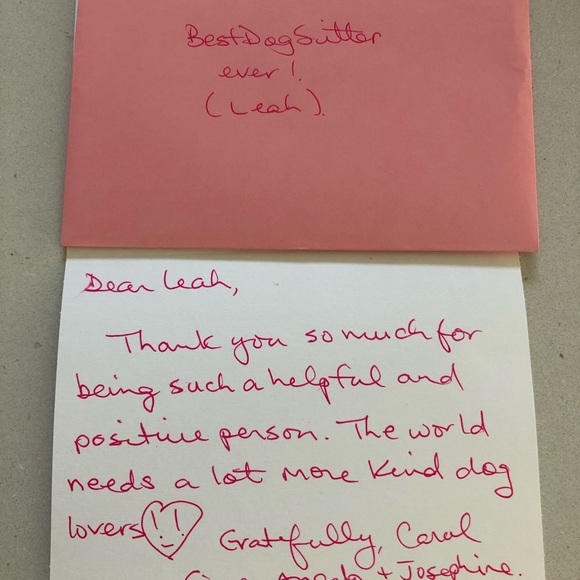 Best Dog Sitter
ever!
(Leah).
Dear Leah,
Thank you so much for
being such a helpful and
positive person. The world
needs a lot more kind dog
lovers!!
Gratefully, Carol
Angela + Josephine.